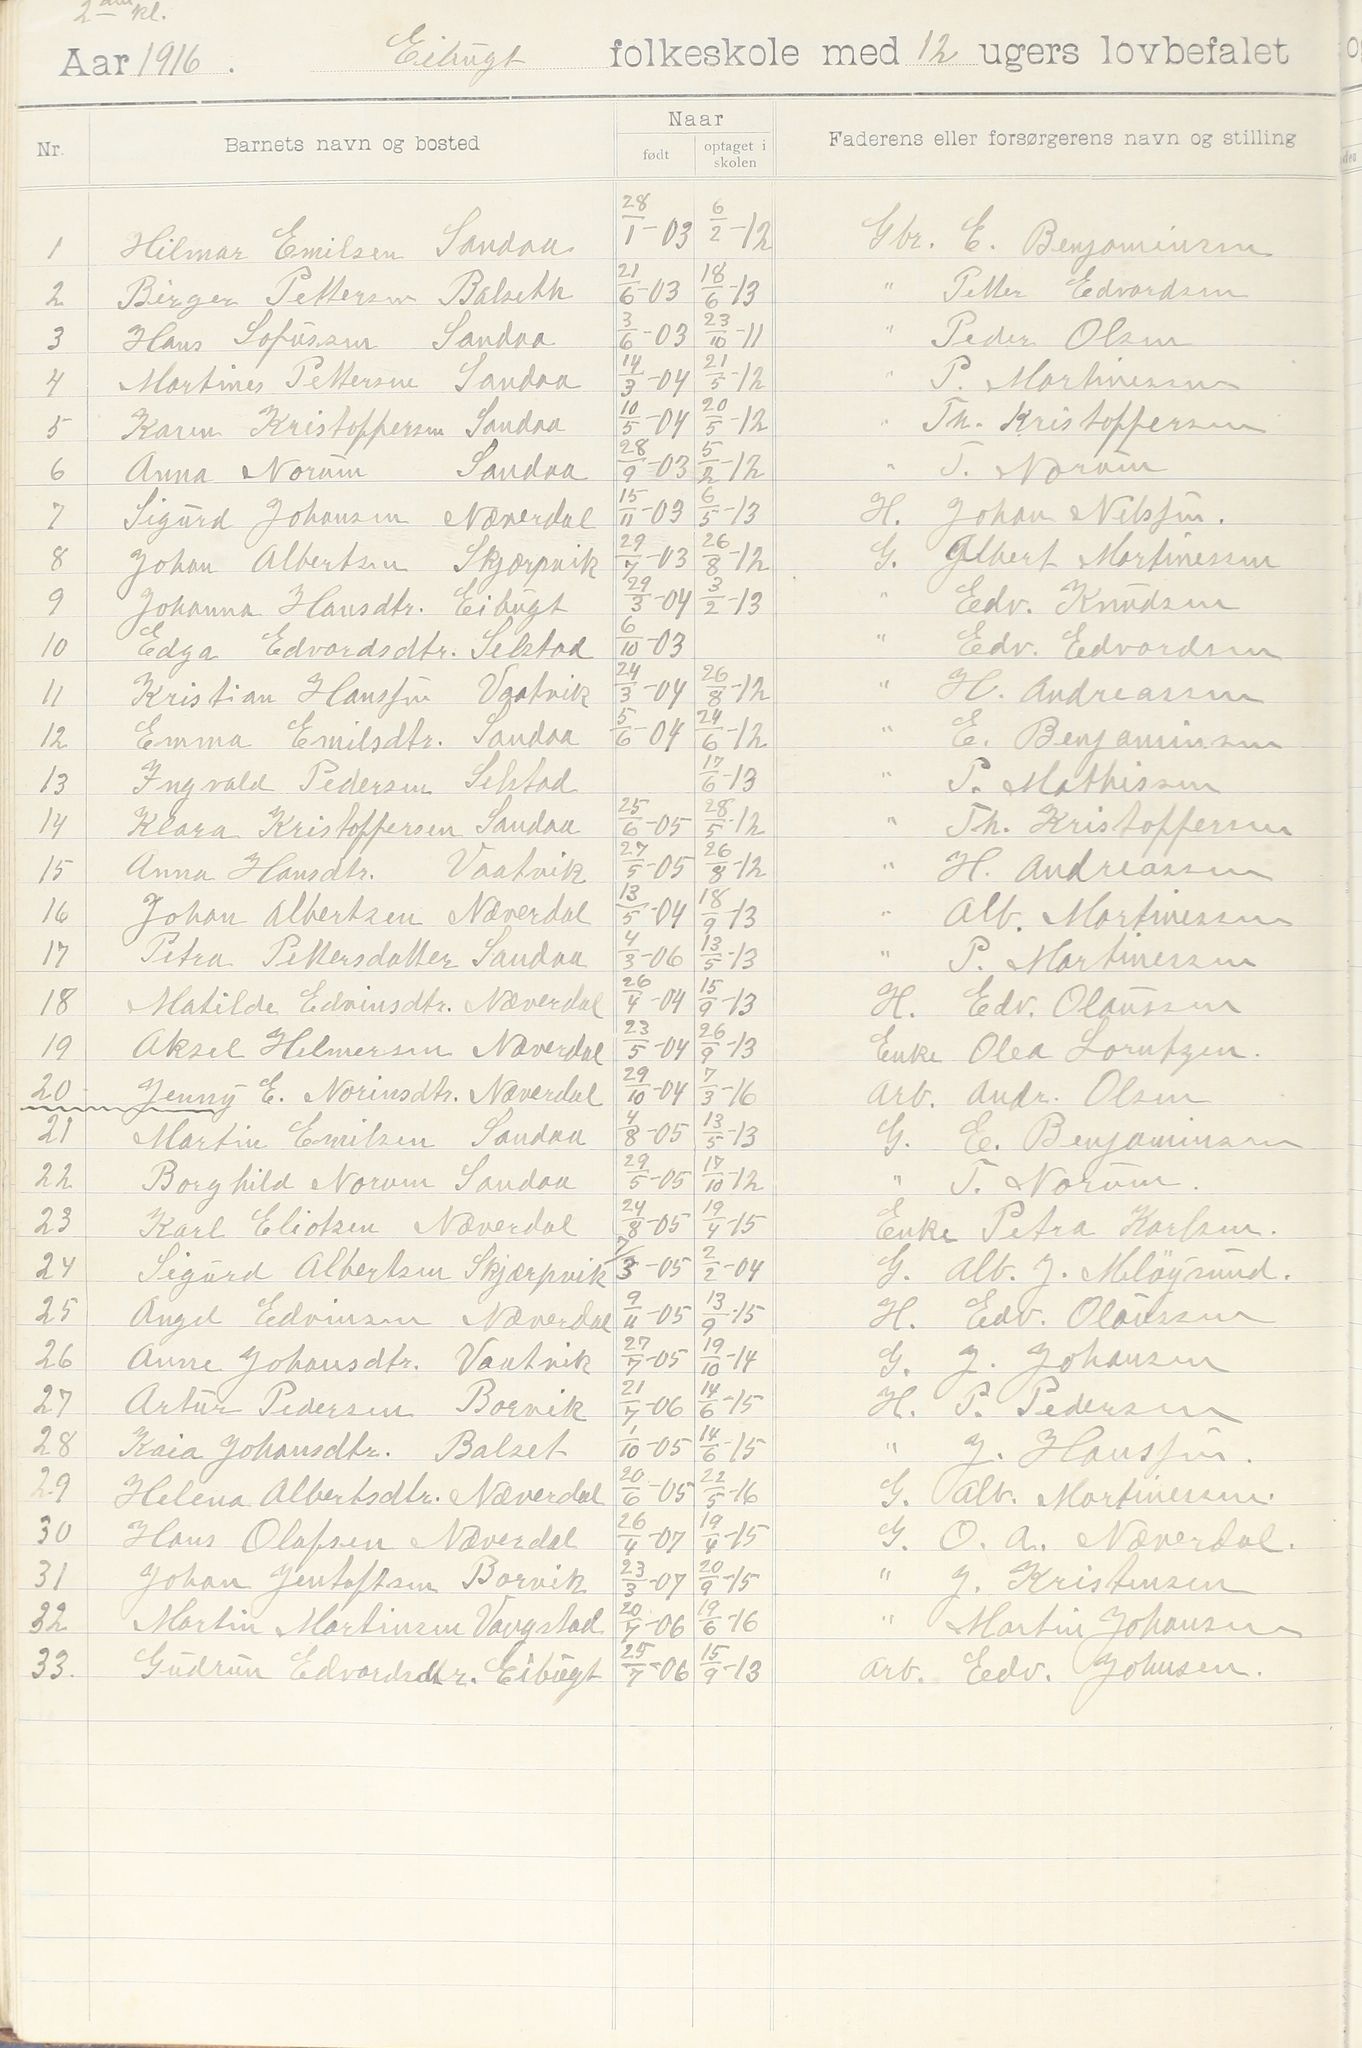 2den kl.
Aar 1916. Eibugt folkeskole med 12 ugers lovbefalet
Nr. Barnets navn og bosted Naar Faderens eller forsørgerens navn og stilling
født optaget i skolen
1 Hilmar Emilsen Sandaa 28/1-03 6/2-12 Gbr. E. Benjaminsen
2 Birger Pettersen Balseth 21/6-03 18/6-13 " Petter Edvardsen
3 Hans Sofussen Sandaa 3/6-03 23/10-11 " Peder Olsen
4 Martines Pettersen Sandaa 14/3-04 21/5-12 " P. Martinessen
5 Karen Kristoffersen Sandaa 10/5-04 20/5-12 " Th. Kristoffersen
6 Anna Norum Sandaa 28/9-03 5/2-12 " T. Norum
7 Sigurd Johansen Næverdal 15/11-03 6/5-13 H. Johan Nilssen.
8 Johan Albertsen Skjærpvik 29/7-03 26/8-12 G. Albert Martinessen
9 Johanna Hansdtr. Eibugt 29/3-04 3/2-13 " Edv. Knudsen
10 Edga Edvardsdtr. Selstad 6/10-03 " Edv. Edvardsen
11 Kristian Hanssen Vaatvik 24/3-04 26/8-12 " H. Andreassen
12 Emma Emilsdtr. Sandaa 5/6-04 24/6-12 " E. Benjaminsen
13 Ingvald Pedersen Selstad 17/6-13 " P. Mathissen
14 Klara Kristoffersen Sandaa 25/6-05 28/5-12 " Th. Kristoffersen
15 Anna Hansdtr. Vaatvik 27/5-05 26/8-12 " H. Andreassen
16 Johan Albertsen Næverdal 13/5-04 18/9-13 " Alb. Martinessen
17 Petra Pettersdatter Sandaa 4/3-06 13/5-13 " P. Martinessen
18 Matilde Edvinsdtr. Næverdal 26/4-04 15/9-13 H. Edv. Olaussen
19 Aksel Helmersen Næverdal 23/5-04 26/9-13 Enke Olea Lorntzen.
20 Jenny E. Norinsdtr. Næverdal 29/10-04 7/3-16 Arb. Andr. Olsen
21 Martin Emilsen Sandaa 4/8-05 13/5-13 G. E. Benjaminsen
22 Borghild Norum Sandaa 29/5-05 17/10-12 " T. Norum.
23 Karl Eliotsen Næverdal 24/8-05 19/4-15 Enke Petra Karlsen.
24 Sigurd Albertsen Skjærpvik 7/3-05 2/2-04 G. Alb. J. Meløysund.
25 Angel Edvinsen Næverdal 9/11-05 13/9-15 H. Edv. Olaussen
26 Anne Johansdtr. Vaatvik 27/7-05 19/10-14 G. J. Johansen
27 Artur Pedersen Borvik 21/7-06 14/6-15 H. P. Pedersen
28 Kaia Johansdtr. Balset 1/10-05 14/6-15 " J. Hanssen.
29 Helena Albertsdtr. Næverdal 20/6-05 22/5-16 G. Alb. Martinessen.
30 Hans Olafsen Næverdal 26/4-07 19/4-15 G. O. A. Næverdal.
31 Johan Jentoftsen Borvik 23/3-07 20/9-15 " J. Kristensen
32 Martin Martinsen Vaagstad 20/7-06 19/6-16 " Martin Johansen
33. Gudrun Edvardsdtr. Eibugt 25/7-06 15/9-13 Arb. Edv. Johnsen.